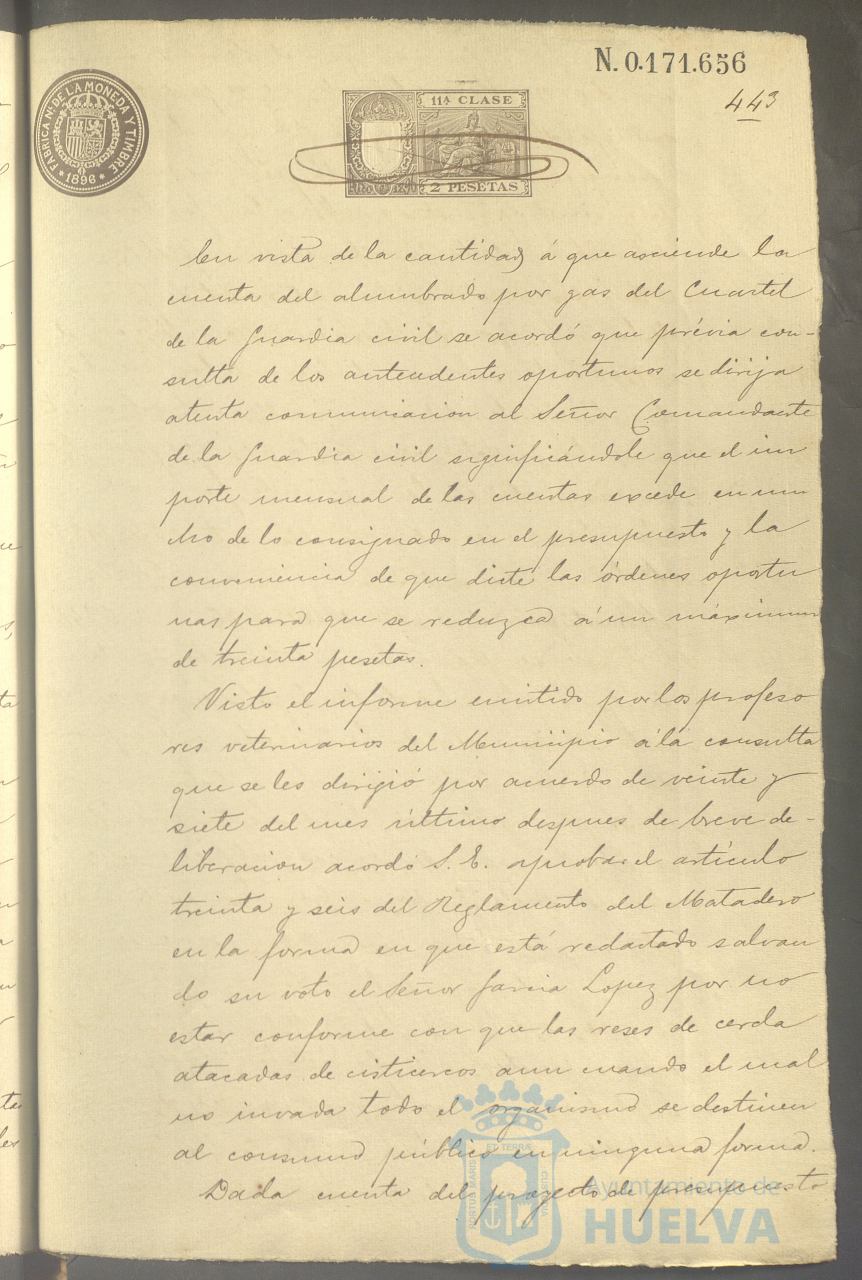 N. 0.171.656
443
FABRICA NAL DE LA MONEDA Y TIMBRE
* 1896 *
11ª CLASE
2 PESETAS
En vista de la cantidad á que asciende la
cuenta del alumbrado por gas del Cuartel
de la Guardia civil se acordó que prévia con-
sulta de los antecedentes oportunos se dirija
atenta comunicacion al Señor Comandante
de la Guardia civil significándole que el im
porte mensual de las cuentas excede en mu
cho de lo consignado en el presupuesto y la
conveniencia de que dicte las órdenes oportu
nas para que se reduzca á un máximum
de treinta pesetas.
Visto el informe emitido por los profeso
res veterinarios del Municipio á la consulta
que se les dirigió por acuerdo de veinte y
siete del mes último despues de breve de-
liberacion acordó S. E. aprobar el artículo
treinta y seis del Reglamento del Matadero
en la forma en que está redactado salvan
do su voto el Señor Garcia Lopez por no
estar conforme con que las reses de cerda
atacadas de cisticercos aun cuando el mal
no invada todo el organismo se destinen
al consumo público en ninguna forma.
Dada cuenta del proyecto de presupuesto
PORTUS MARIS
ET TERRÆ
CUSTODIA
Ayuntamiento de
HUELVA